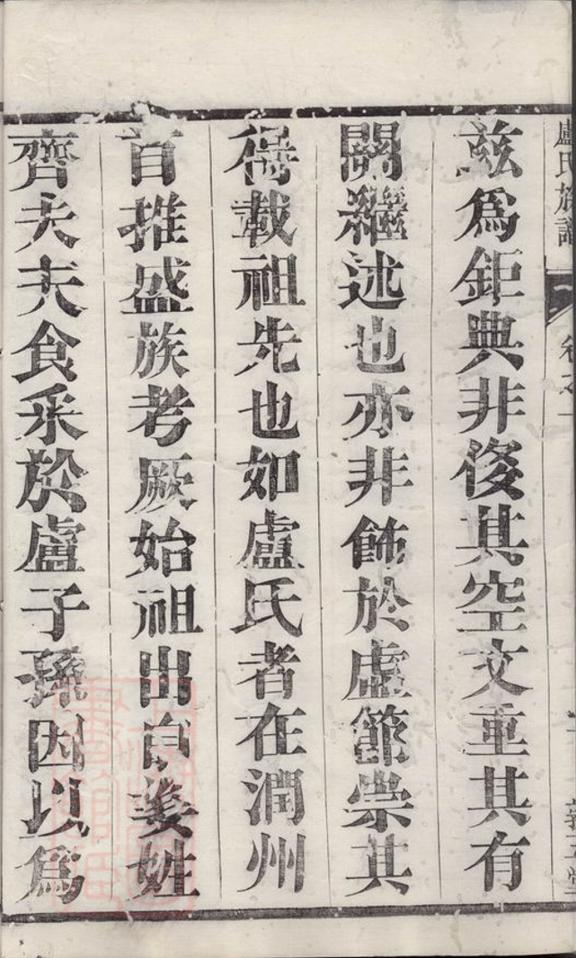 盧氏族譜
卷之一
茲爲鉅典非侈其空文重其有
關繼述也亦非飾於虛節崇其
得載祖先也如盧氏者在潤州
首推盛族考厥始祖出自姜姓
齊大夫食采於盧子孫因以爲